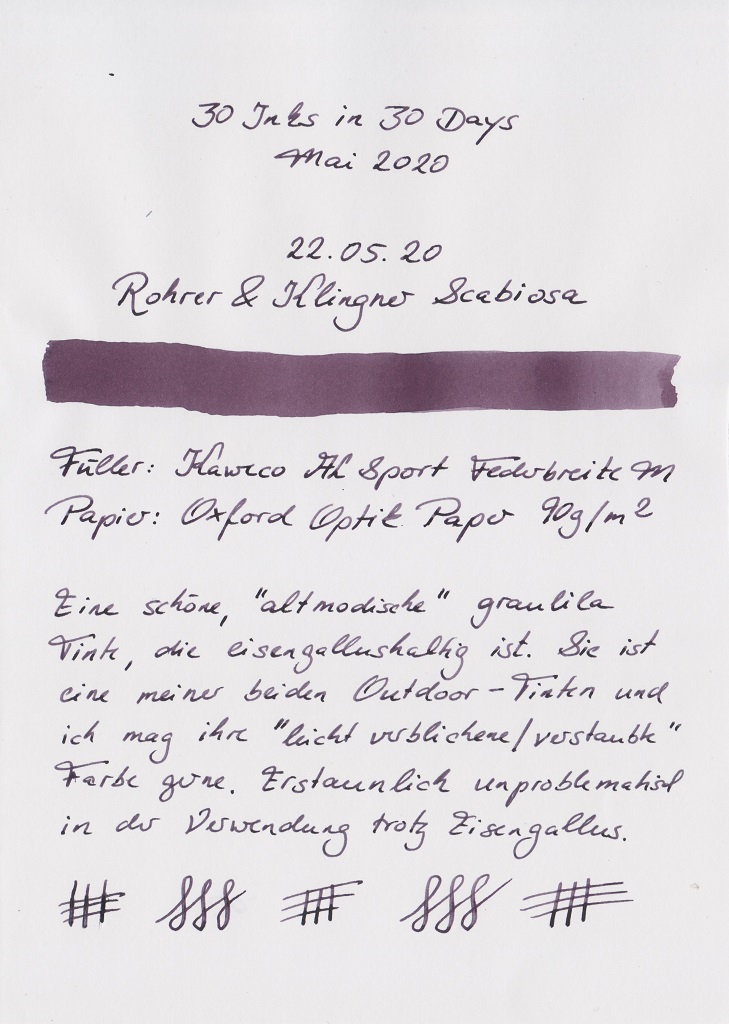 30 Inks in 30 Days
Mai 2020
22.05.20
Rohrer & Klingner Scabiosa
Füller: Kaweco AL Sport Federbreite M
Papier: Oxford Optik Paper 90g/m²
Eine schöne, "altmodische" graulila
Tinte, die eisengallushaltig ist. Sie ist
eine meiner beiden Outdoor-Tinten und
ich mag ihre "leicht verblichene/verstaubte"
Farbe gerne. Erstaunlich unproblematisch
in der Verwendung trotz Eisengallus.